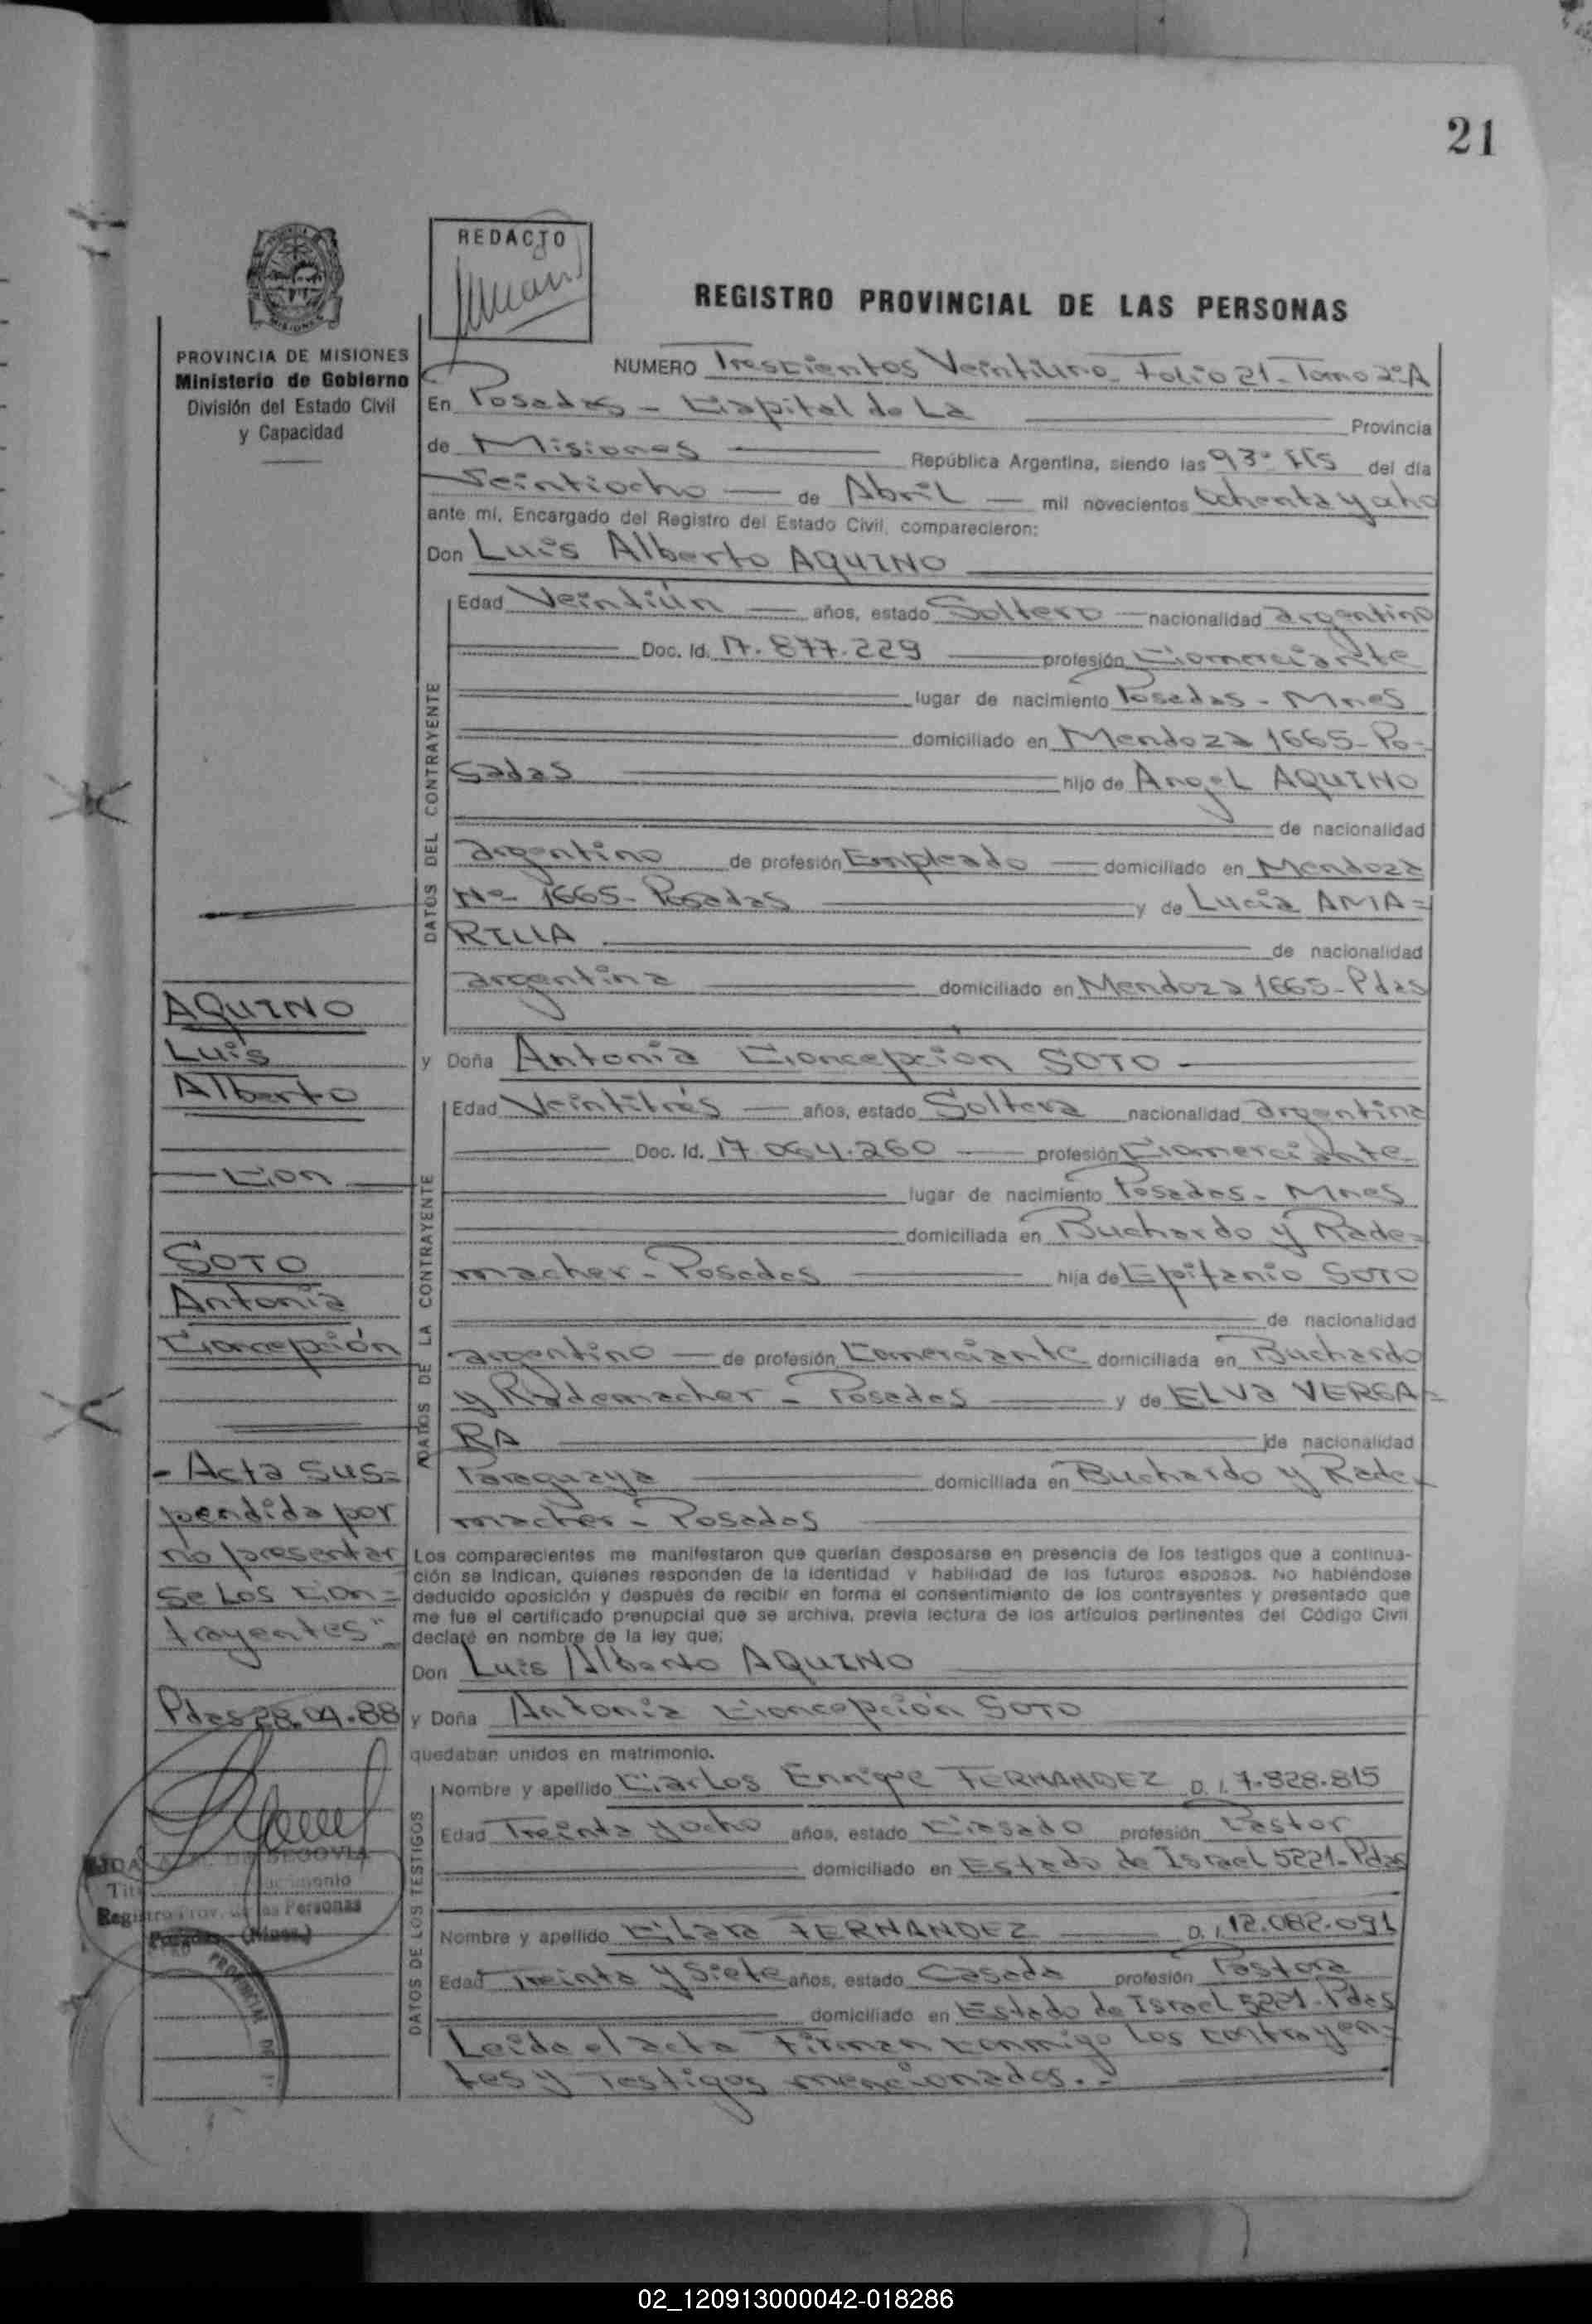 21
REDACTO
REGISTRO PROVINCIAL DE LAS PERSONAS
PROVINCIA DE MISIONES
Ministerio de Gobierno
División del Estado Civil
y Capacidad
NUMERO Trescientos Veintiuno Folio 21 - Tomo 2º A
En Posadas - Capital de La Provincia
de Misiones República Argentina, siendo las 930 Hs del día
Veintiocho de Abril mil novecientos Ochenta y ocho
ante mí, Encargado del Registro del Estado Civil, comparecieron:
Don Luis Alberto AQUINO
DATOS DEL CONTRAYENTE
Edad Veintiún años, estado Soltero nacionalidad argentino
Doc. Id. 17.877.229 profesión Comerciante
lugar de nacimiento Posadas - Mnes
domiciliado en Mendoza 1665 - Po-
sadas hijo de Angel AQUINO
de nacionalidad
argentino de profesión Empleado domiciliado en Mendoza
Nº 1665 - Posadas y de Lucia AMA=
RILLA de nacionalidad
argentina domiciliado en Mendoza 1665 - Pdas
y Doña Antonia Concepción SOTO
DATOS DE LA CONTRAYENTE
Edad Veintitrés años, estado Soltera nacionalidad argentina
Doc. Id. 17.064.260 profesión Comerciante
lugar de nacimiento Posadas - Mnes
domiciliada en Buchardo y Rade=
macher - Posadas hija de Epifanio SOTO
de nacionalidad
argentino de profesión Comerciante domiciliada en Buchardo
y Rademacher - Posadas y de ELVA VERGA=
RA de nacionalidad
Paraguaya domiciliada en Buchardo y Rade-
macher - Posadas
Los comparecientes me manifestaron que querían desposarse en presencia de los testigos que a continua-
ción se indican, quienes responden de la identidad y habilidad de los futuros esposos. No habiéndose
deducido oposición y después de recibir en forma el consentimiento de los contrayentes y presentado que
me fue el certificado prenupcial que se archiva, previa lectura de los artículos pertinentes del Código Civil
declaré en nombre de la ley que;
Don Luis Alberto AQUINO
y Doña Antonia Concepción SOTO
quedaban unidos en matrimonio.
DATOS DE LOS TESTIGOS
Nombre y apellido Carlos Enrique FERNANDEZ D.I. 7.828.815
Edad Treinta y ocho años, estado Casado profesión Pastor
domiciliado en Estado de Israel 5221 - Pdas
Nombre y apellido Clara FERNANDEZ D.I. 12.082.091
Edad Treinta y Siete años, estado Casada profesión Pastora
domiciliado en Estado de Israel 5221 - Pdas
Leida el acta Firman conmigo los contrayen=
tes y Testigos mencionados.-
AQUINO
Luis
Alberto
Con
SOTO
Antonia
Concepción
- Acta sus=
pendida por
no presentar
se Los Con=
trayentes"
Pdas 28.04.88
SEGOVIA
Registro Prov. de las Personas
Posadas (Mnes.)
02_120913000042-018286